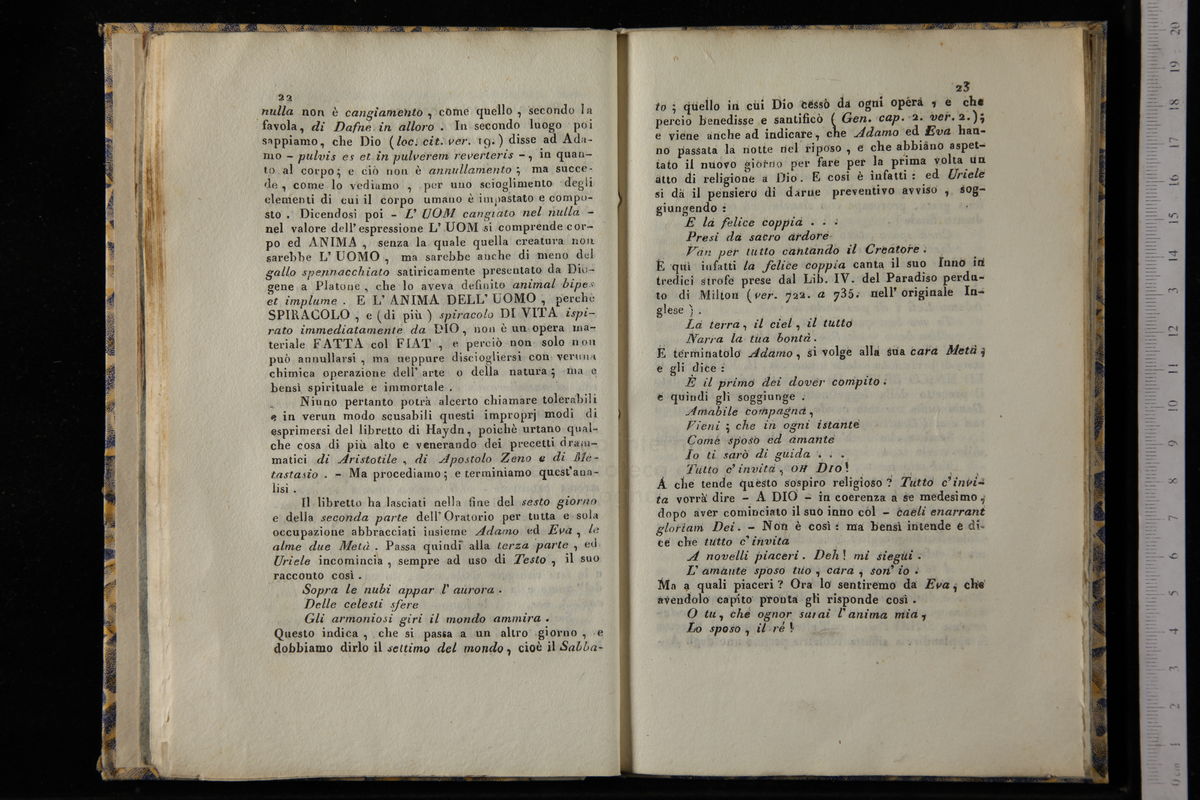 22
nulla non è cangiamento , come quello , secondo la
favola, di Dafne in alloro . In secondo luogo poi
sappiamo, che Dio (loc. cit. ver. 19.) disse ad Ada-
mo – pulvis es et in pulverem reverteris – , in quan-
to al corpo; e ciò non è annullamento ; ma succe-
de , come lo vediamo , per uno scioglimento degli
elementi di cui il corpo umano è impastato e compo-
sto . Dicendosi poi – L' UOM cangiato nel nulla –
nel valore dell'espressione L' UOM si comprende cor-
po ed ANIMA , senza la quale quella creatura non
sarebbe L' UOMO , ma sarebbe anche di meno del
gallo spennacchiato satiricamente presentato da Dio-
gene a Platone , che lo aveva definito animal bipes
et implume . E L' ANIMA DELL' UOMO , perchè
SPIRACOLO , e (di più ) spiracolo DI VITA ispi-
rato immediatamente da DIO , non è un opera ma-
teriale FATTA col FIAT , e perciò non solo non
può annullarsi , ma neppure disciogliersi con veruna
chimica operazione dell' arte o della natura ; ma e
bensì spirituale e immortale .
Niuno pertanto potrà alcerto chiamare tolerabili
e in verun modo scusabili questi improprj modi di
esprimersi del libretto di Haydn, poichè urtano qual-
che cosa di più alto e venerando dei precetti dram-
matici di Aristotile , di Apostolo Zeno e di Me-
tastasio . – Ma procediamo ; e terminiamo quest'ana-
lisi .
Il libretto ha lasciati nella fine del sesto giorno
e della seconda parte dell' Oratorio per tutta e sola
occupazione abbracciati insieme Adamo ed Eva , le
alme due Metà . Passa quindi alla terza parte , ed
Uriele incomincia , sempre ad uso di Testo , il suo
racconto così .
Sopra le nubi appar l' aurora .
Delle celesti sfere
Gli armoniosi giri il mondo ammira .
Questo indica , che si passa a un altro giorno , e
dobbiamo dirlo il settimo del mondo , cioè il Sabba-
23
to ; quello in cui Dio cessò da ogni opera , e che
perciò benedisse e santificò ( Gen. cap. 2. ver. 2.);
e viene anche ad indicare, che Adamo ed Eva han-
no passata la notte nel riposo , e che abbiano aspet-
tato il nuovo giorno per fare per la prima volta un
atto di religione a Dio . E così è infatti : ed Uriele
si dà il pensiero di darne preventivo avviso , sog-
giungendo :
E la felice coppia . . .
Presi da sacro ardore
Van per tutto cantando il Creatore .
E qui infatti la felice coppia canta il suo Inno in
tredici strofe prese dal Lib. IV. del Paradiso perdu-
to di Milton (ver. 722. a 735. nell' originale In-
glese ) .
La terra , il ciel , il tutto
Narra la tua bontà .
E terminatolo Adamo , si volge alla sua cara Metà ,
e gli dice :
È il primo dei dover compito .
e quindi gli soggiunge .
Amabile compagna ,
Vieni ; che in ogni istante
Come sposo ed amante
Io ti sarò di guida . . .
Tutto c' invita , OH DIO !
A che tende questo sospiro religioso ? Tutto c' invi-
ta vorrà dire – A DIO – in coerenza a se medesimo ,
dopo aver cominciato il suo inno col – caeli enarrant
gloriam Dei . – Non è così : ma bensì intende e di-
ce che tutto c' invita
A novelli piaceri . Deh ! mi siegui .
L' amante sposo tuo , cara , son' io .
Ma a quali piaceri ? Ora lo sentiremo da Eva , che
avendolo capito pronta gli risponde così .
O tu , che ognor sarai l' anima mia ,
Lo sposo , il rè !
0 cm 1 2 3 4 5 6 7 8 9 10 11 12 13 14 15 16 17 18 19 20